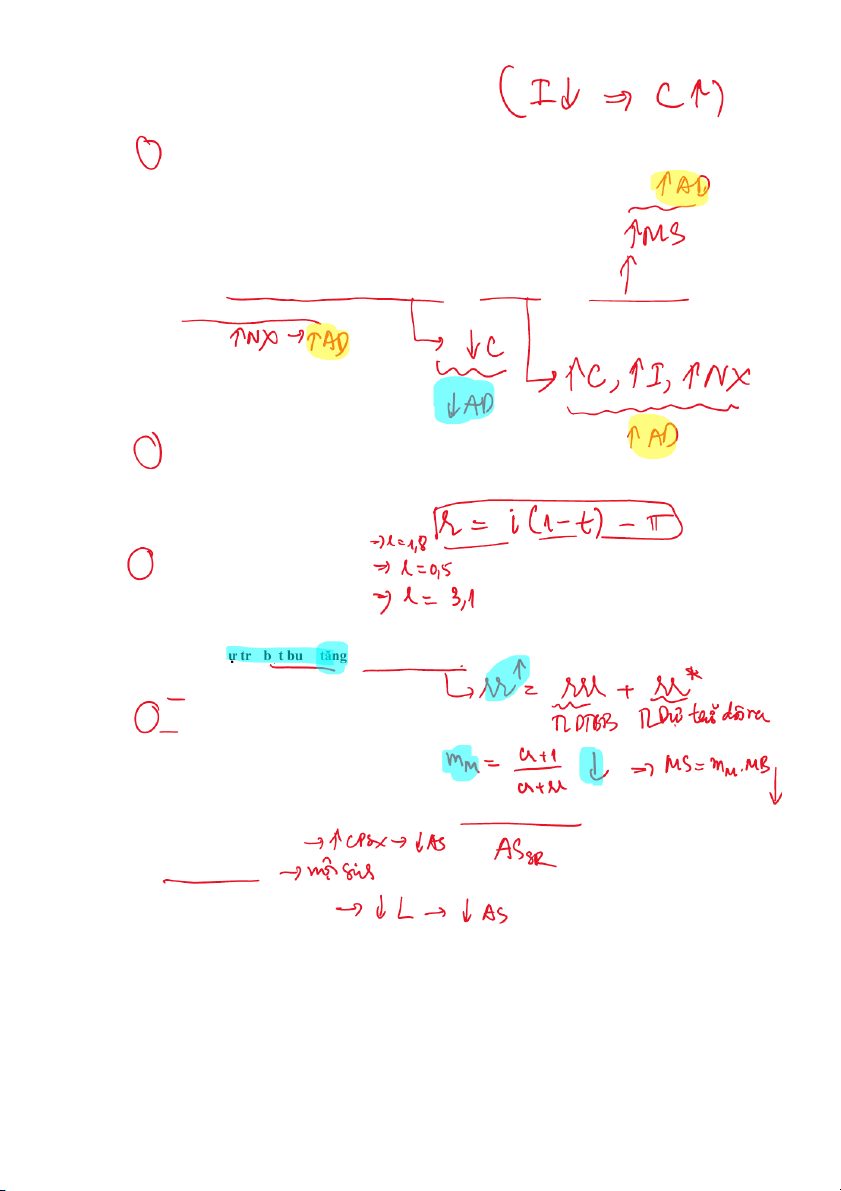 (I↓ ⇒ C↑)
↑AD
↑MS
↑
↑NX → ↑AD
↓C
↓AD
↑C, ↑I, ↑NX
↑AD
r = i(1-t) - π
→ r = 1,8
⇒ r = 0,5
⇒ r = 3,1
ự tr b t bu tăng
rr↑ = rrr + rr*
TL DTBB TL Dự trữ dôi ra
m_M = cr+1 / cr+rr ↓ ⇒ MS = m_M.MB ↓
→ ↑ CPSX → ↓AS
AS_SR
→
→ ↓ L → ↓ AS